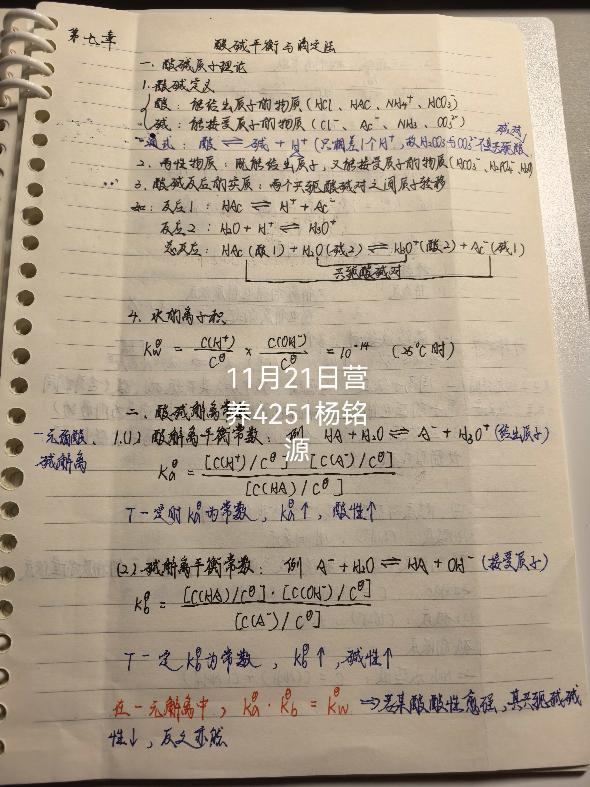 第七章
酸碱平衡与滴定法
一. 酸碱质子理论
1. 酸碱定义
酸: 能给出质子的物质 (HCl、HAC、NH₄⁺、HCO₃⁻)
碱: 能接受质子的物质 (Cl⁻、Ac⁻、NH₃、CO₃²⁻)
通式: 酸 ⇌ 碱 + H⁺ (只相差1个H⁺, 故H₂CO₃与CO₃²⁻不是共轭酸碱对)
2. 两性物质: 既能给出质子, 又能接受质子的物质 (HCO₃⁻、H₂PO₄⁻、H₂O)
3. 酸碱反应的实质: 两个共轭酸碱对之间质子转移
如: 反应1: HAc ⇌ H⁺ + Ac⁻
反应2: H₂O + H⁺ ⇌ H₃O⁺
总反应: HAc (酸1) + H₂O (碱2) ⇌ H₃O⁺ (酸2) + Ac⁻ (碱1)
共轭酸碱对
4. 水的离子积
Kw^θ = C(H⁺)/C^θ × C(OH⁻)/C^θ = 10⁻¹⁴ (25℃时)
11月21日营
养4251杨铭
源
二. 酸碱解离常
一元弱酸、碱解离
1.(1). 酸解离平衡常数: 例 HA + H₂O ⇌ A⁻ + H₃O⁺ (给出质子)
Ka^θ = [C(H⁺)/C^θ] [C(A⁻)/C^θ] / [C(HA)/C^θ]
T一定时Ka^θ为常数, Ka^θ↑, 酸性↑
(2). 碱解离平衡常数: 例 A⁻ + H₂O ⇌ HA + OH⁻ (接受质子)
Kb^θ = [C(HA)/C^θ]·[C(OH⁻)/C^θ] / [C(A⁻)/C^θ]
T一定Kb^θ为常数, Kb^θ↑, 碱性↑
在一元解离中, Ka^θ · Kb^θ = Kw^θ ⇒若某酸酸性愈强, 其共轭碱碱
性↓, 反之亦然